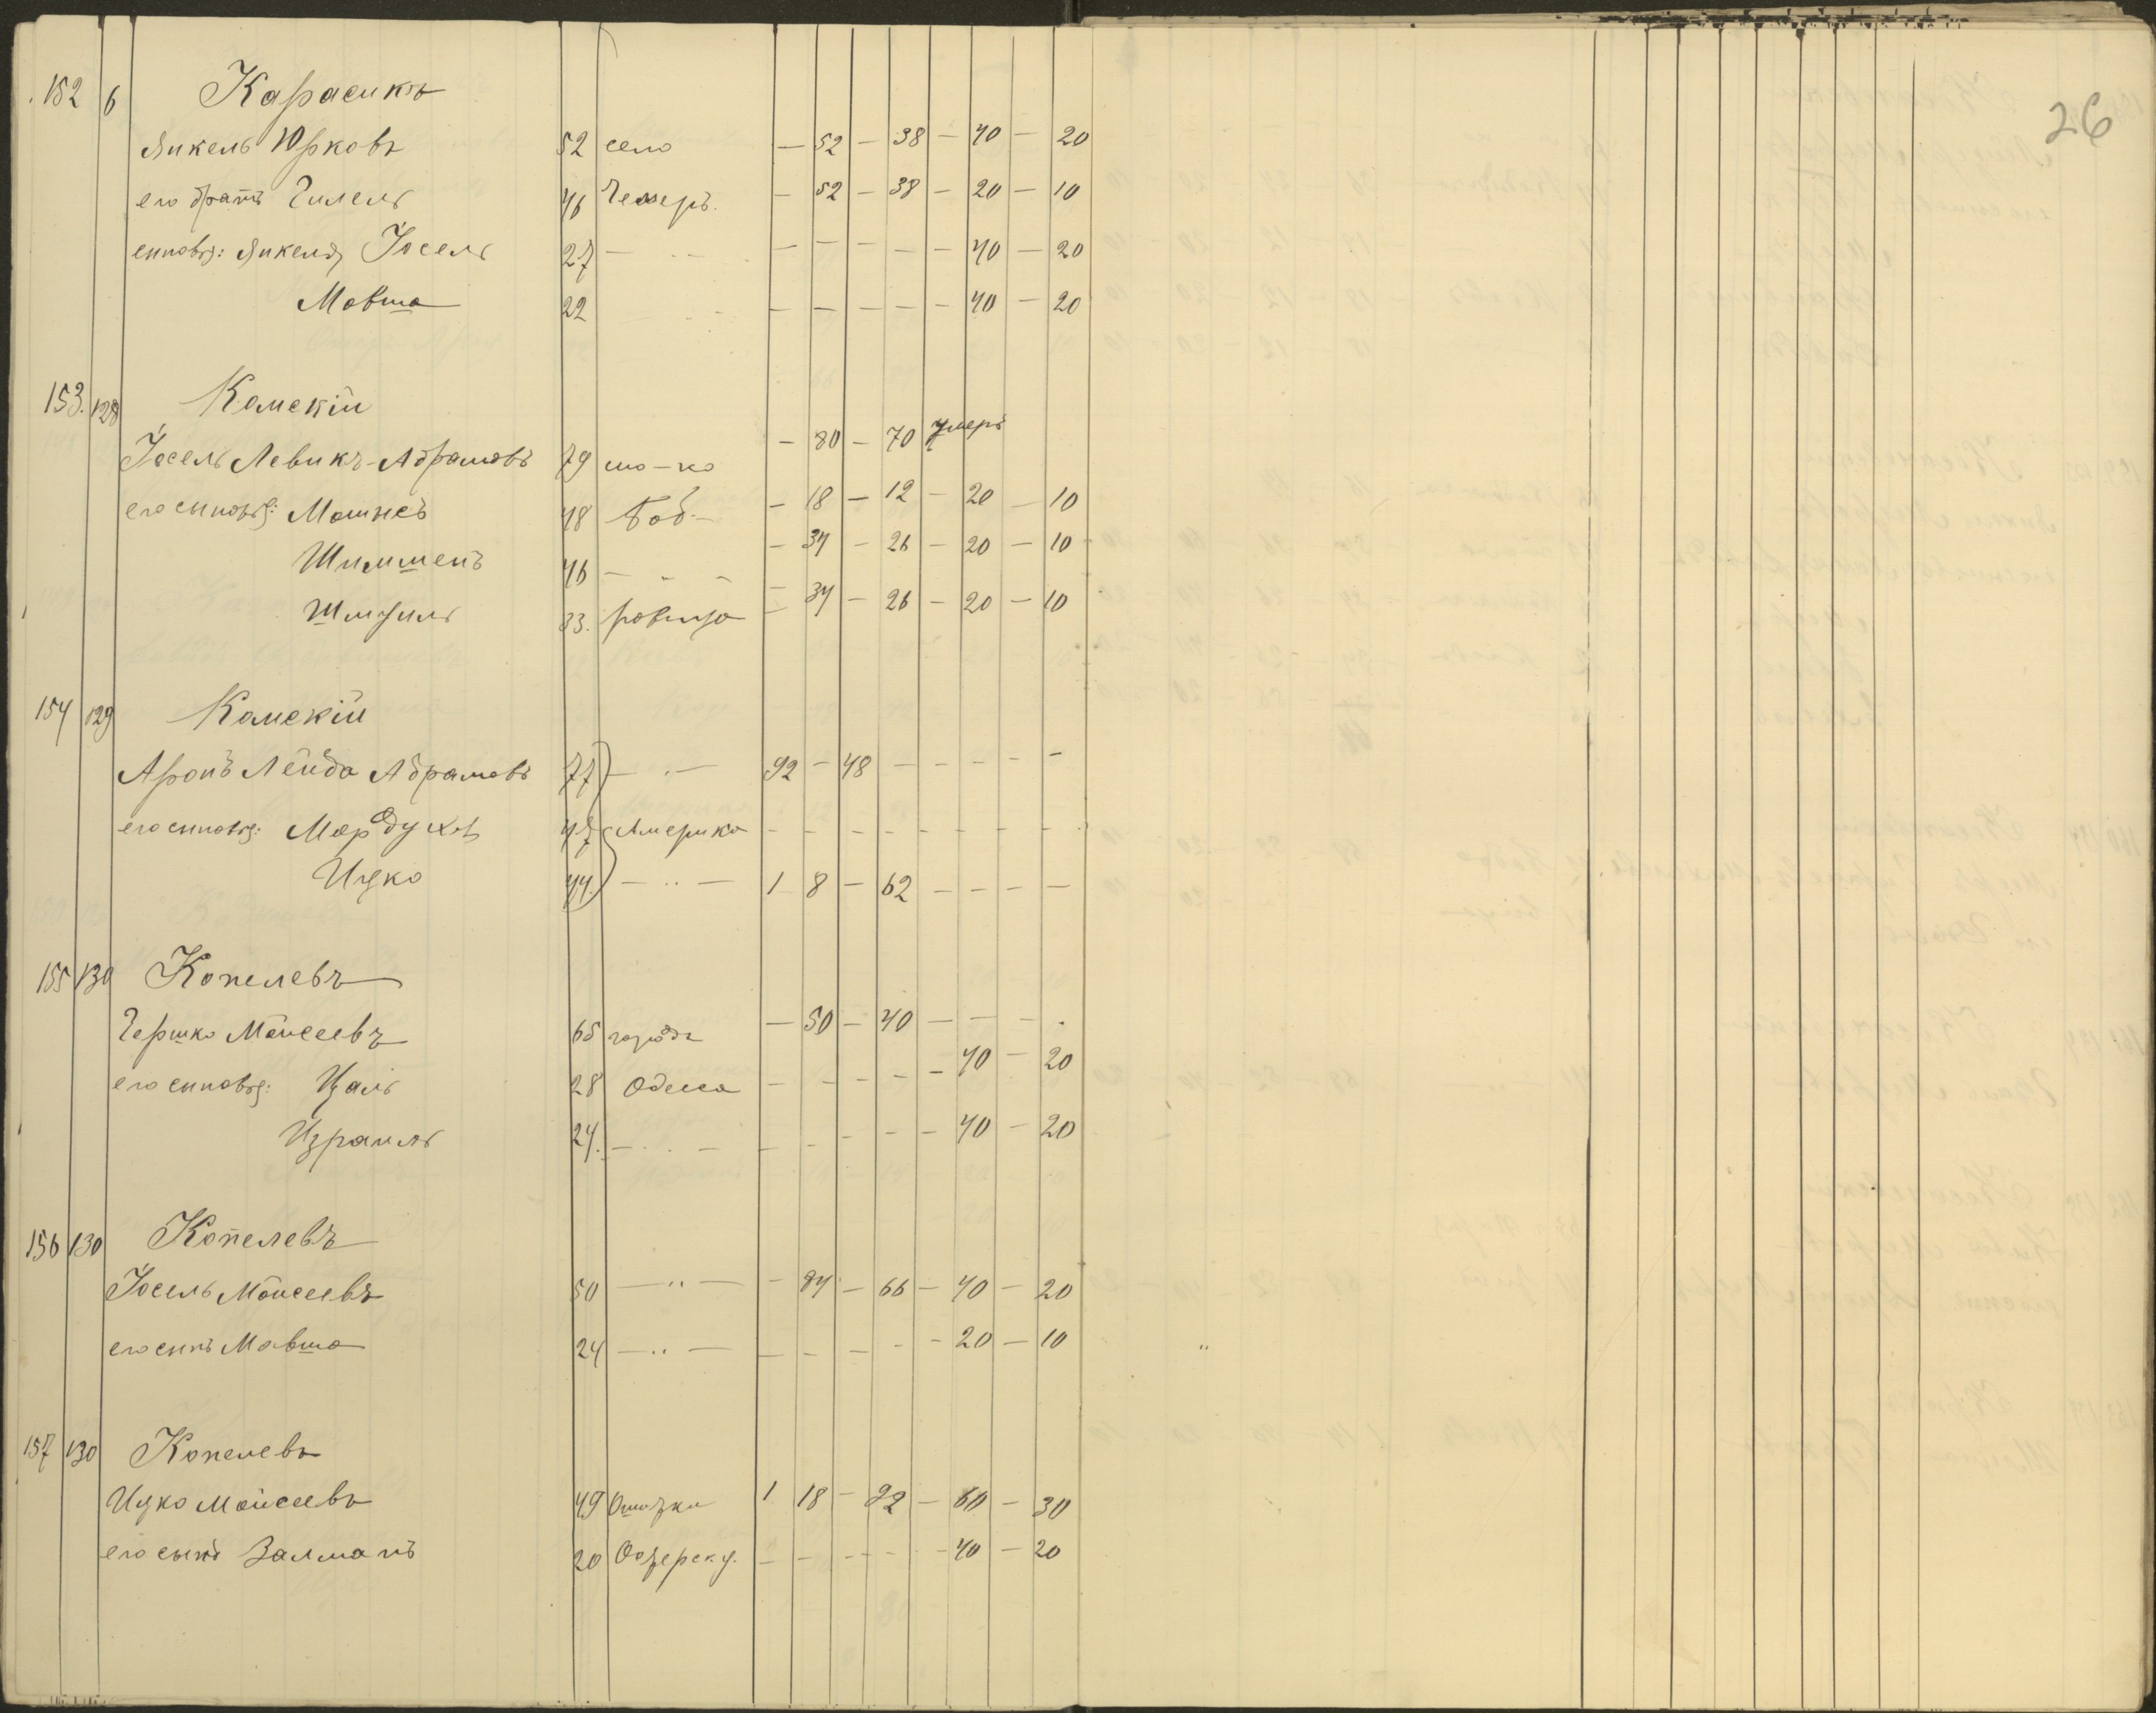 26
152 6 Карасикъ
Янкель Юрковъ 52 село — 52 — 38 — 40 — 20
его братъ Гилель 46 — 52 — 38 — 20 — 10
сыновья: Янкеля Іосель 27 — — — — — — 40 — 20
Мовша 22 — — — — — 40 — 20
153. 128 Камскій
Іосель Левикъ-Абрамовъ 79 — 80 — 70 умеръ
его сыновья: 48 Боб. — 18 — 12 — 20 — 10
46 — 34 — 26 — 20 — 10
33. — 34 — 26 — 20 — 10
154 129 Камскій
Аронъ Лейба Абрамовъ 77 — " — 92 — 48 — — — — —
его сыновья: Мордухъ 47 Америка — — — — — — — —
Ицко 44 — " — 1 8 — 62 — — — —
155 130 Копелевъ
Гершко Мойсеевъ 65 городъ — 50 — 40 — — — .
его сыновья: 28 Одесса — — — — — 40 — 20
Израиль 24. — " — — — — — — 40 — 20
156 130 Копелевъ
Іосель Мойсеевъ 50 — " — — 84 — 66 — 40 — 20
его сынъ Мовша 24 — " — — — — — — 20 — 10
157 130 Копелевъ
Ицко Мойсеевъ 49 1 18 — 92 — 60 — 30
его сынъ Залманъ 20 — — — — — 40 — 20